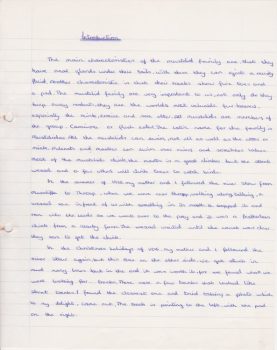 Introduction
The main characteristics of the mustelid family are that they
have scent glands under their tails, with these they can eject a musty
fluid. Another characteristic is that their tracks show five toes and
a pad. The mustelid family are very important to us, not only do they
keep away rodents, they are the worlds most valuable fur bearers,
especially the mink, ermine and sea otter. All mustelids are members of
the group: Carnivora or flesh eaters. The Latin name for this family is
Mustelidae. All the mustelids can swim, not all as well as the otter or
mink. Polecats and martens can swim over rivers and
Most of the mustelids climb, the marten is a good climber but the stoat
weasel and a few others will climb trees to seek birds.
In the summer of 1975 my mother and I followed the river from
to when we were near happily walking along talking, a
weasel ran infront of us with something in its mouth. It dropped it and
ran into the reeds so we went over to the prey and it was a featherless
chick from a nearby farm. The weasel waited until the coast was clear
then ran to get the chick.
In the Christmas holidays of 1976, my mother and I followed the
river again, but this time on the other side. We got stuck in
mud many times but in the end it was worth it, for we found what we
were looking for - tracks. There were a few tracks that looked like
tracks. I found the clearest one and tried taking a photo which
to my delight, came out. The track is pointing to the left with the pad
on the right.